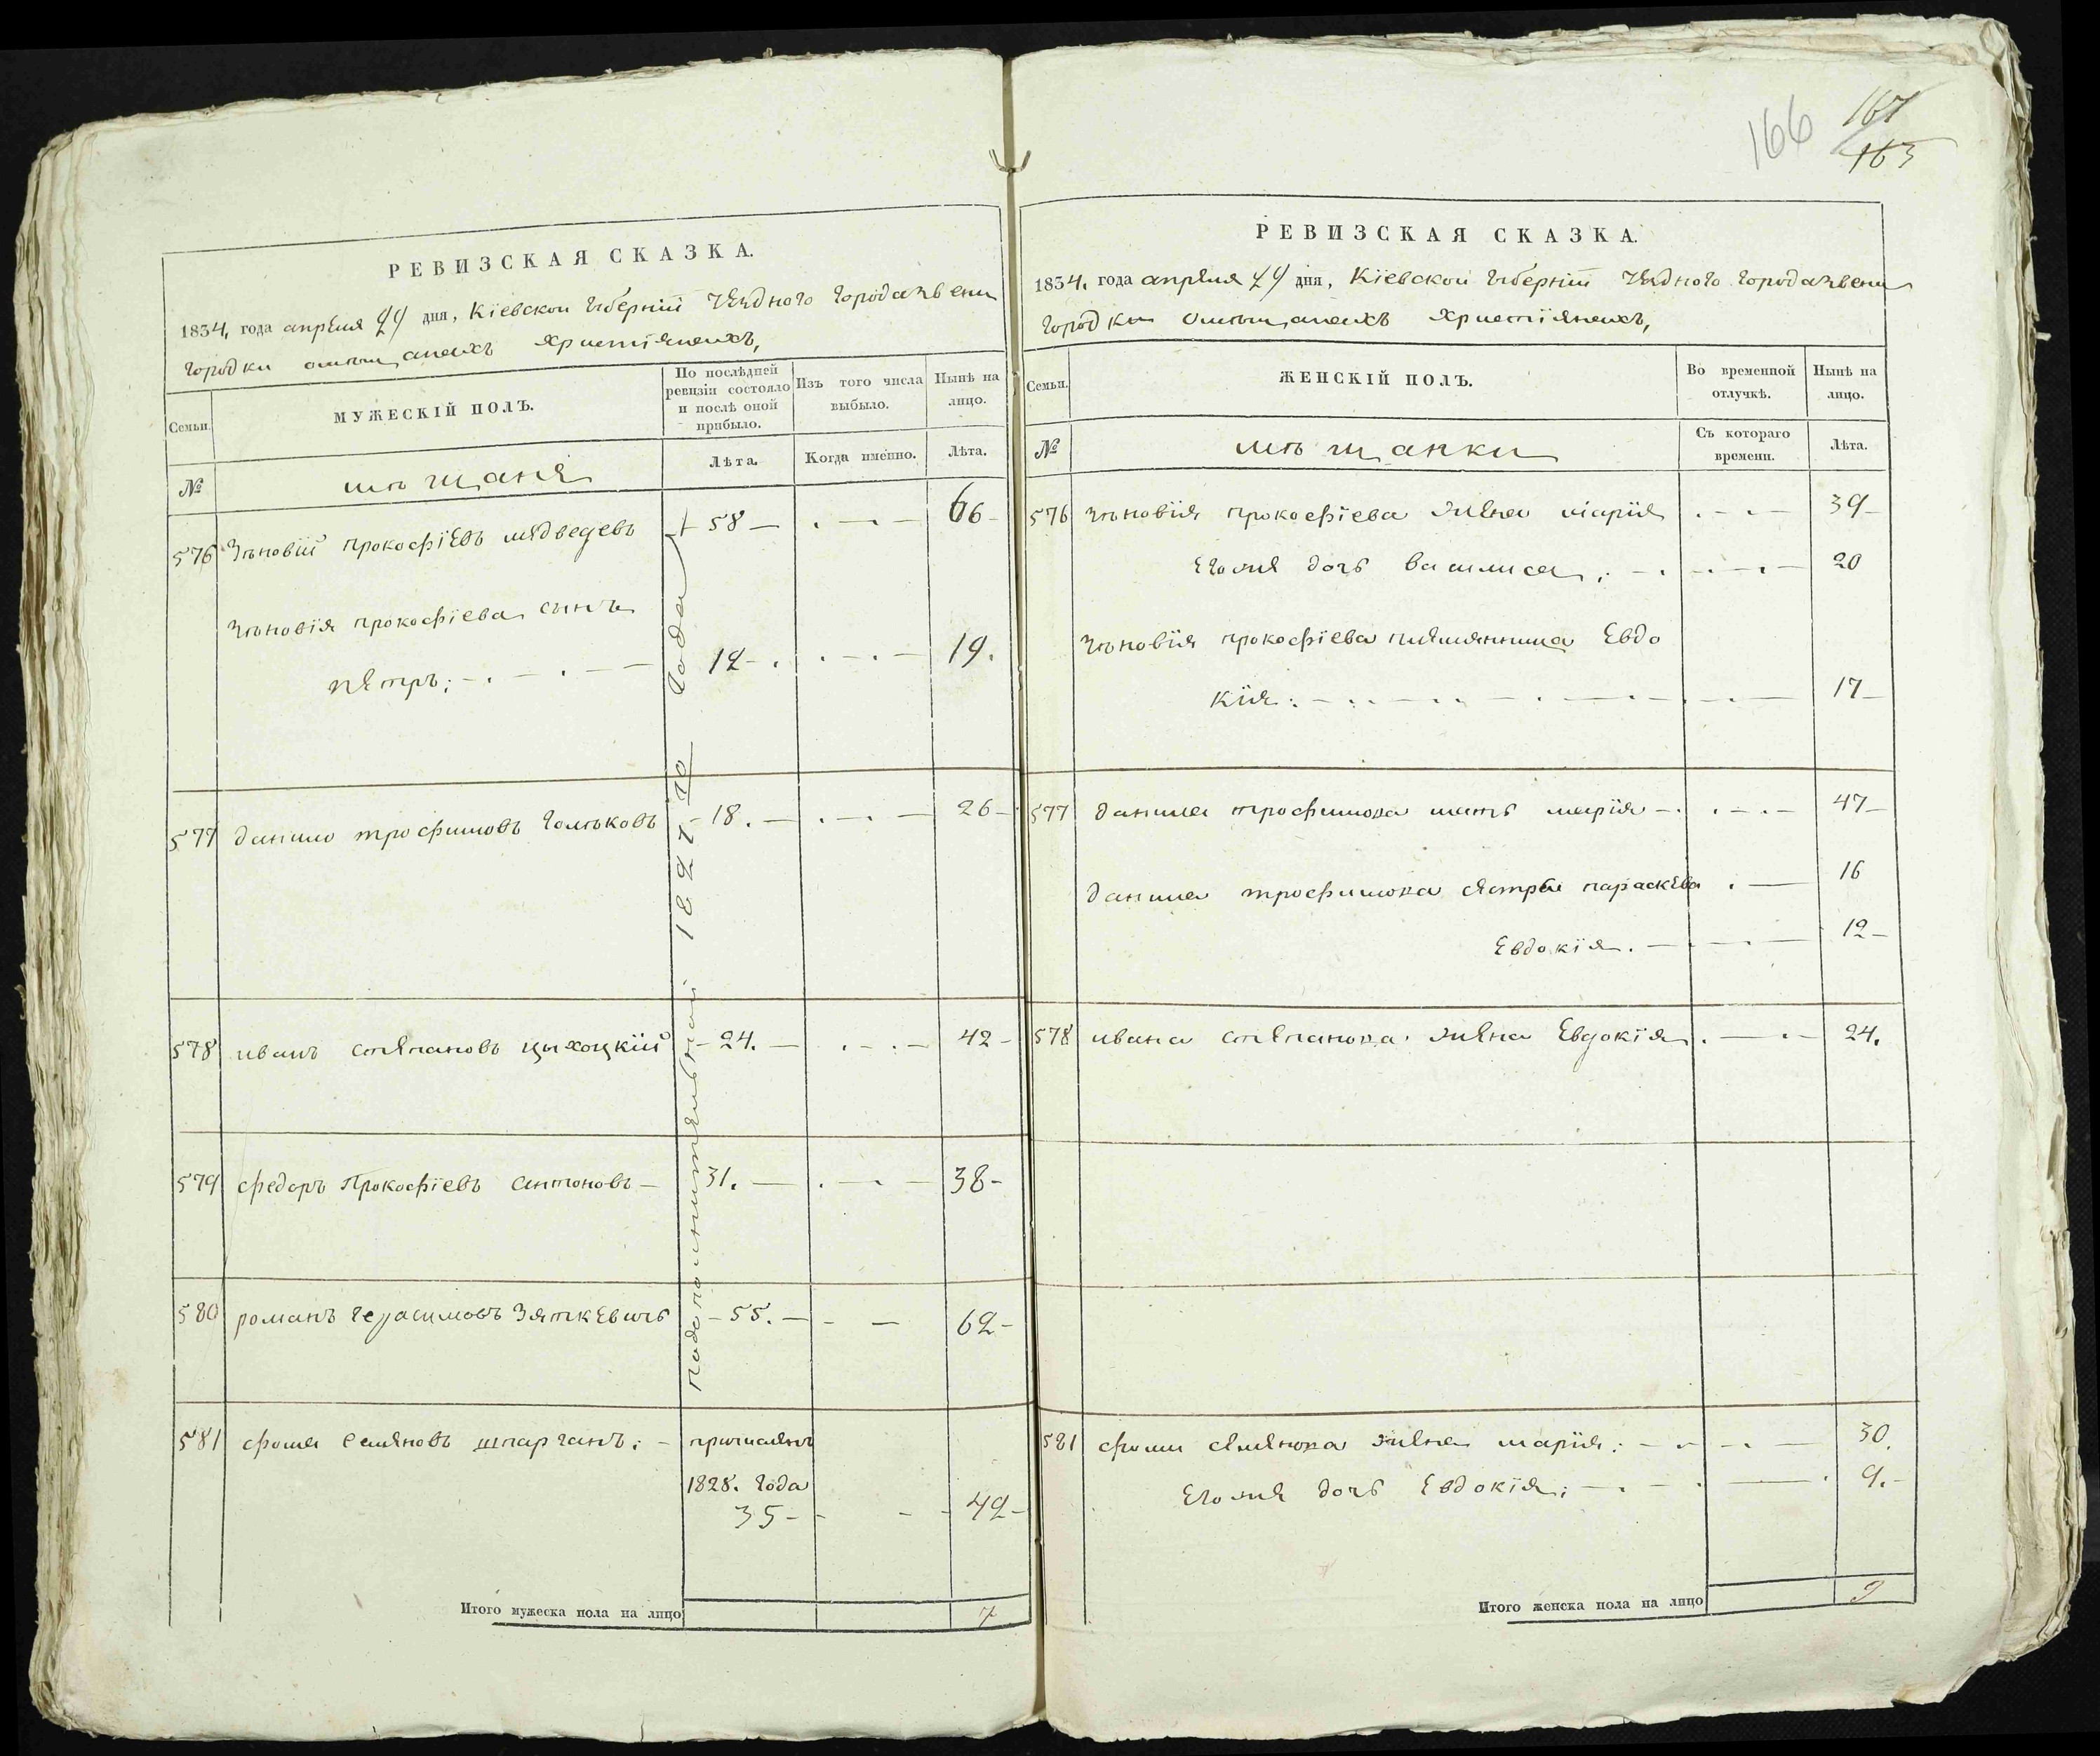 РЕВИЗСКАЯ СКАЗКА.
1834, года апреля 24 дня, Кіевской Губерніи уезднаго города Звени
городки омѣщанехъ христіянехъ,
Семьи.
МУЖЕСКІЙ ПОЛЪ.
По послѣдней ревизіи состояло и послѣ оной прибыло.
Изъ того числа выбыло.
Нынѣ на лицо.
№
мѣщане
Лѣта.
Когда имянно.
Лѣта.
576 Зѣновій прокофіевъ медведевъ 58 — 66
Зѣновія прокофіева сынъ
петръ; 12 — 19.
577 данило трофимовъ Гольковъ 18. — 26
578 иванъ степановъ цыхоцкій 24. — 42
579 федоръ Прокофіевъ антоновъ 31. — 38
580 романъ герасимовъ Зяткевичъ 55. — 62
581 фома семеновъ шпарганъ; причисленъ
1828. года
35 — 42
подополнительной 1827 го года
Итого мужеска пола на лицо 7
166
167
165
РЕВИЗСКАЯ СКАЗКА.
1834, года апреля 24 дня, Кіевской Губерніи уезднаго города Звени
городки омѣщанехъ христіянехъ,
Семьи.
ЖЕНСКІЙ ПОЛЪ.
Во временной отлучкѣ.
Нынѣ на лицо.
№
мѣщанки
Съ котораго времени.
Лѣта.
576 Зѣновія прокофіева жена марія 39
Егоже дочь василиса; 20
Зѣновія прокофіева племянница Евдо
кія: 17
577 данила трофимова мать марія 47
данила трофимова сестры параскева 16
Евдокія. 12
578 ивана степанова жена Евдокія 24.
581 фомы семенова жена марія: 30.
Егоже дочь Евдокія; 9.
Итого женска пола на лицо 9